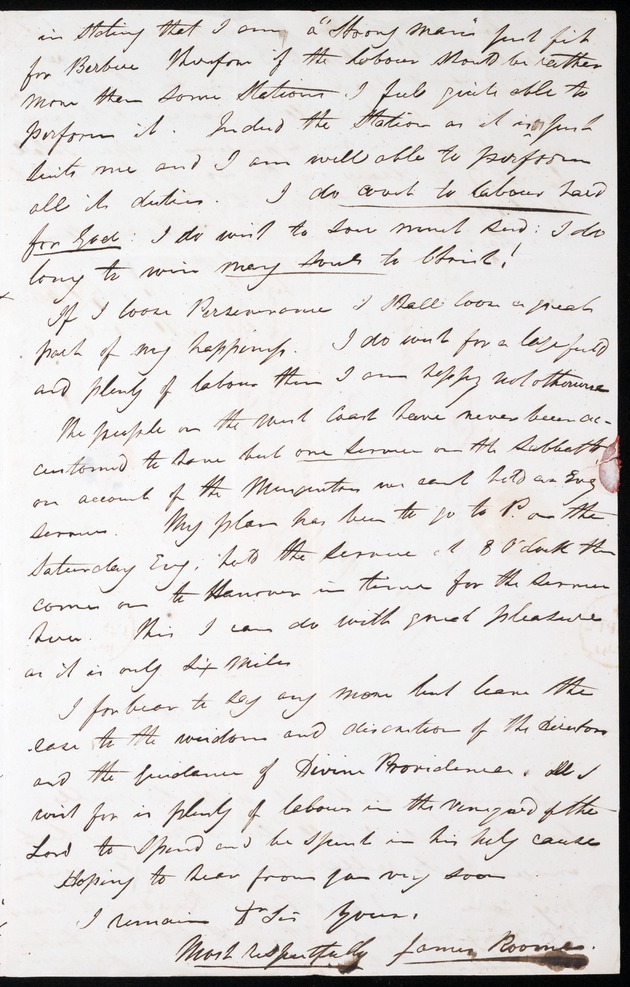 in stating that I am a "Strong man" just fit
for Berbice therefore if the labour should be rather
more than some Stations I feel quite able to
perform it. Indeed the Station as it is just
suits me and I am well able to perform
all its duties. I do want to labour hard
for God: I do wish to sow much seed: I do
long to win many souls to Christ!
If I loose Perseverance I shall loose a great
part of my happiness. I do wish for a large field
and plenty of labour then I am happy not otherwise
The people on the West Coast have never been ac-
customed to have but one service on the Sabbath
on account of the Musquitos we cant hold an Evg
service. My plan has been to go to P. on the
Saturday Evg, hold the service at 8 O'clock then
come on to Hanover in time for the service
here. This I can do with great pleasure
as it is only six miles
I forbear to say any more but leave the
case to the wisdom and discretion of the Directors
and the guidance of Divine Providence. All I
wish for is plenty of labour in the vineyard of the
Lord to Spend and be Spent in his holy cause
Hoping to hear from you very soon
I remain Dr Sir Yours,
Most respectfully James Roome.